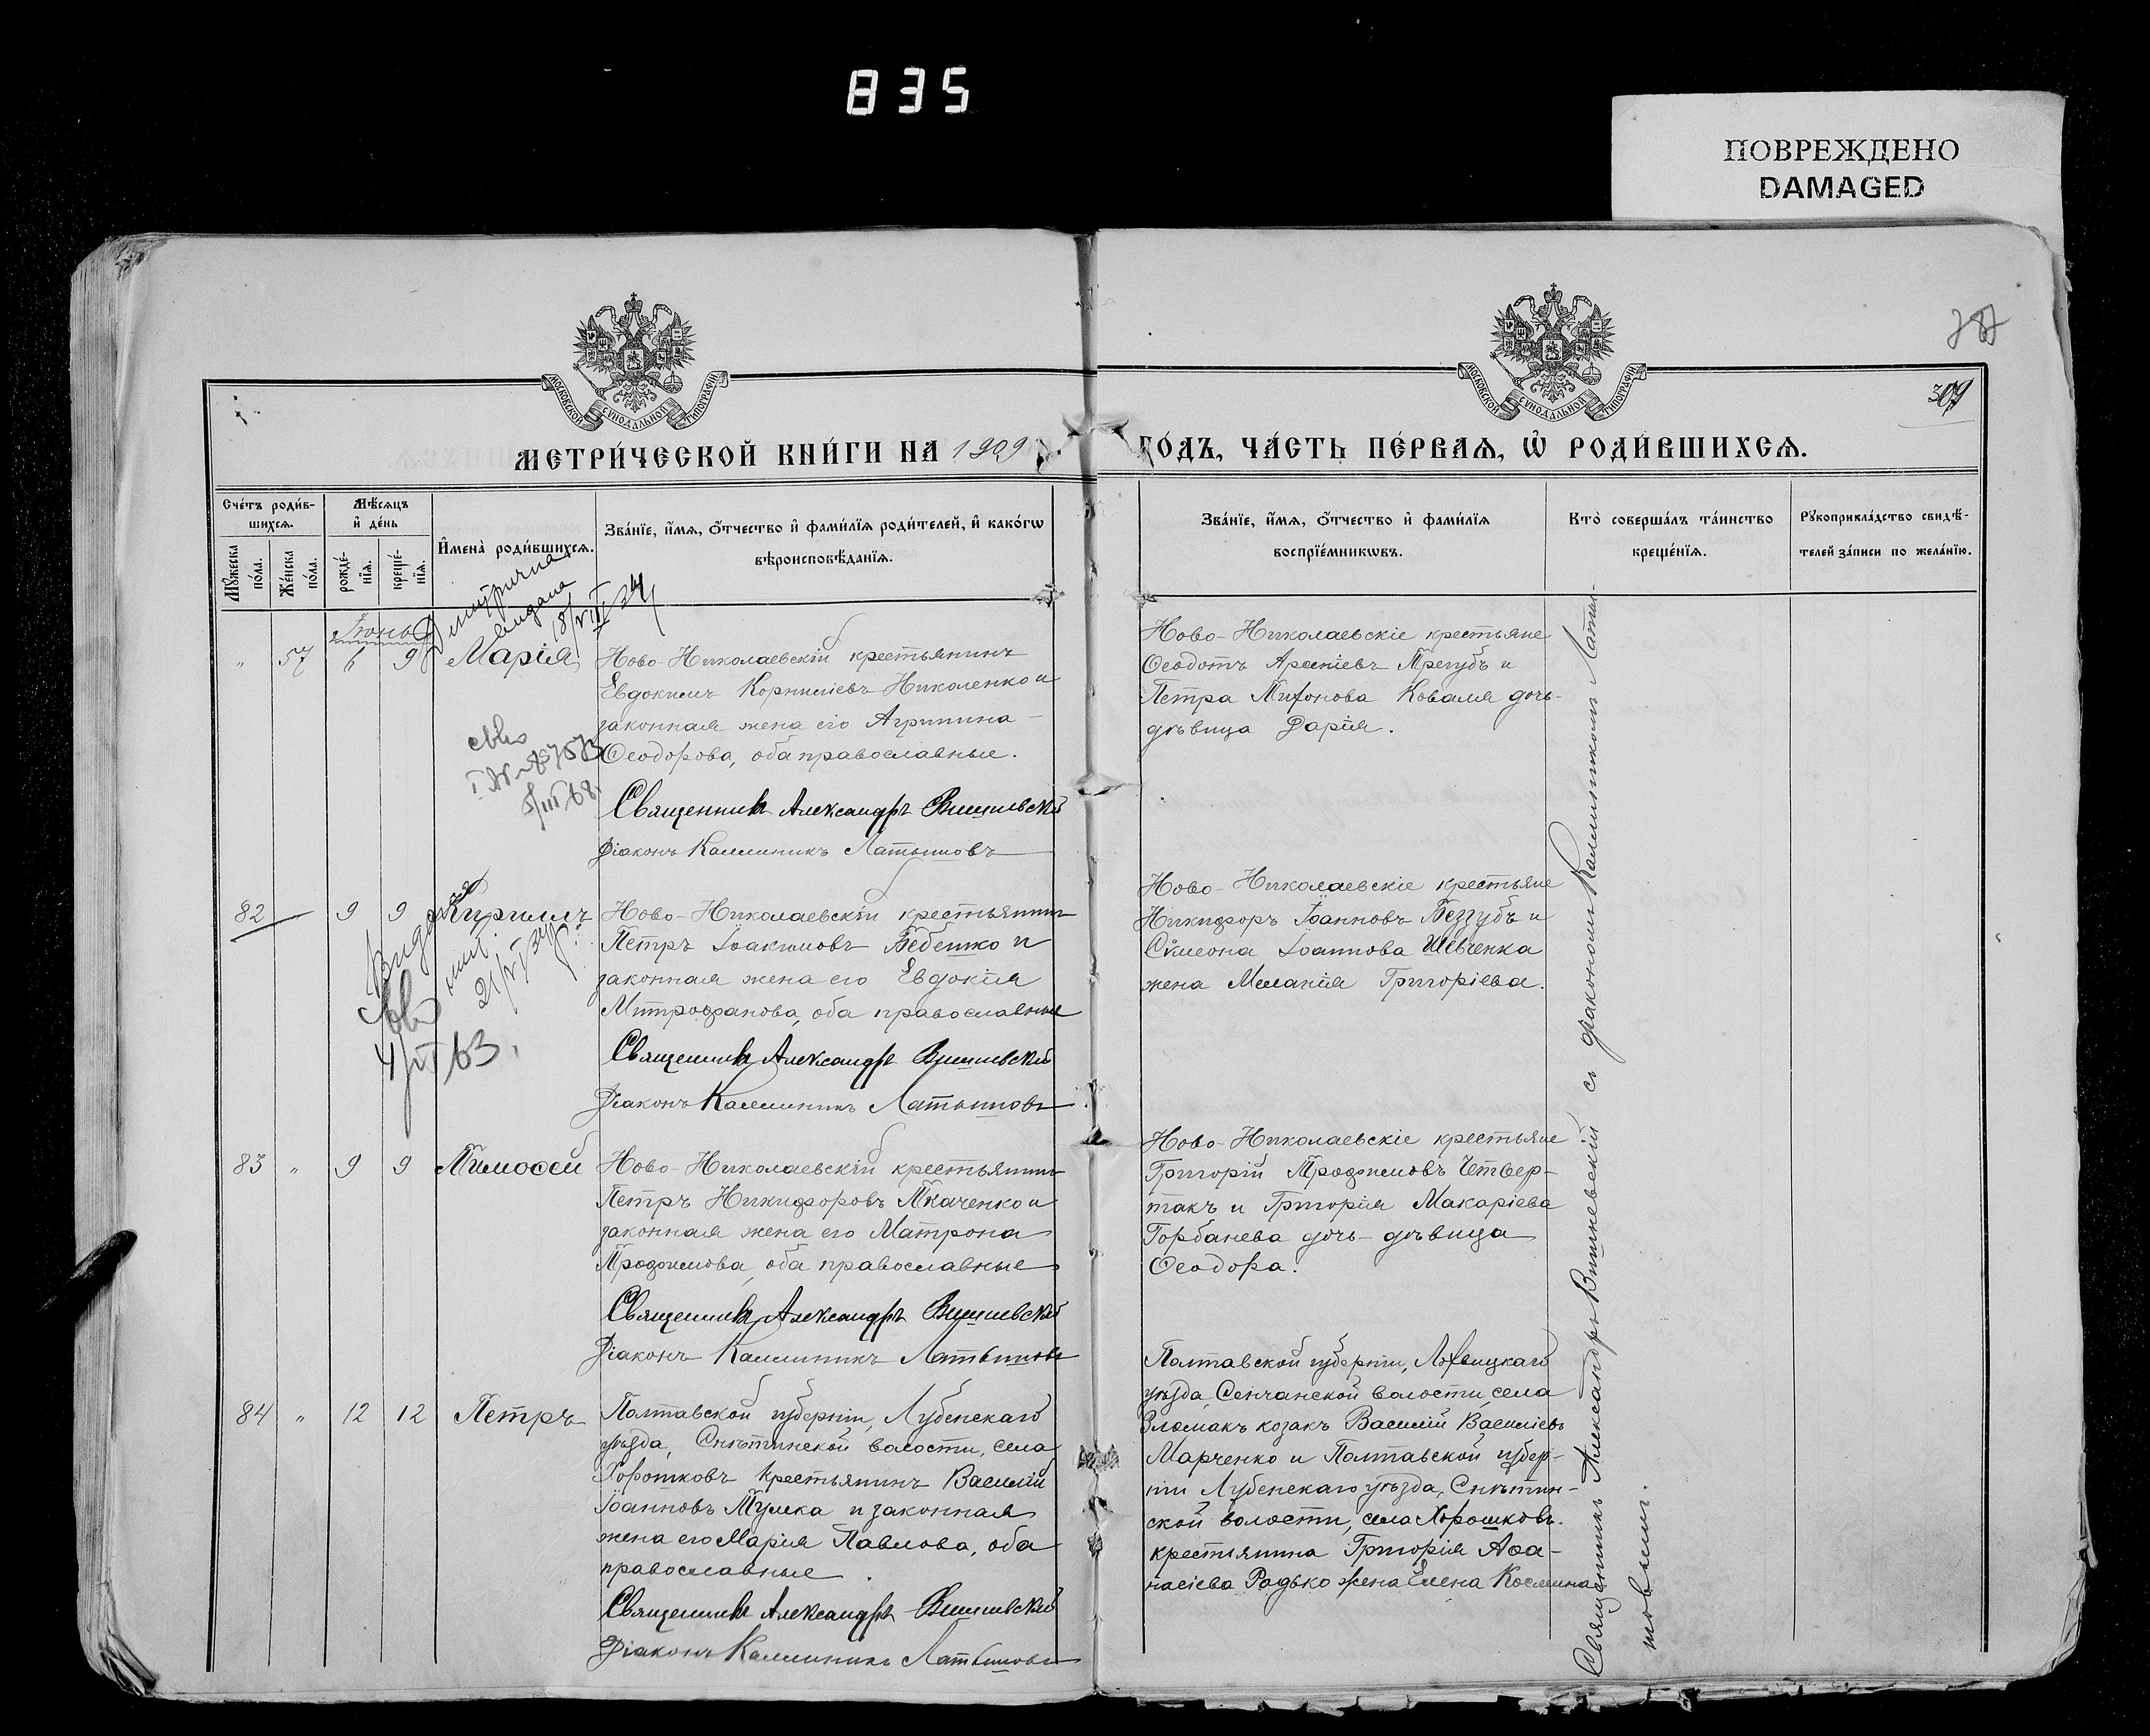 835
ПОВРЕЖДЕНО
DAMAGED
МОСКОВСКОЙ СѴНОДАЛЬНОЙ ТИПОГРАФІИ
МОСКОВСКОЙ СѴНОДАЛЬНОЙ ТИПОГРАФІИ
309
МЕТРИ́ЧЕСКОЙ КНИ́ГИ НА 1909 ГО́ДЪ, ЧА́СТЬ ПЕ́РВАЯ, Ѡ҆ РОДИ́ВШИХСЯ.
Сче́тъ роди́в-
шихся.
Мꙋ́жеска по́ла.
Же́нска по́ла.
Мѣ́сяцъ
и҆ де́нь
рожде́-
нїя.
креще́-
нїя.
И҆мена̀ роди́вшихся.
Зва́нїе, и҆́мя, ѻ҆́тчество и҆ фами́лїя роди́телей, и҆ како́гѡ
вѣроисповѣ́данїя.
Зва́нїе, и҆́мя, ѻ҆́тчество и҆ фами́лїя
воспрїе́мникѡвъ.
Кто̀ соверша́лъ та́инство
креще́нїя.
Рꙋкоприкла́дство свидѣ́-
телей за́писи по жела́нїю.
Іюнь
" 57 6 9 Марія
Ново-Николаевскій крестьянинъ
Евдокимъ Корниліевъ Николенко и
законная жена его Агрипина
Ѳеодорова, оба православные.
Священникъ Александръ Вишневскій
Діаконъ Каллиникъ Латышовъ
Ново-Николаевскіе крестьяне
Ѳеодотъ Арсеніевъ Трегубъ и
Петра Тихонова Коваля дочь-
дѣвица Дарія.
82 — 9 9 Кириллъ
Ново-Николаевскій крестьянинъ
Петръ Іоакимовъ Бебешко и
законная жена его Евдокія
Митрофанова, оба православные
Священникъ Александръ Вишневскій
Діаконъ Каллиникъ Латышовъ
Ново-Николаевскіе крестьяне
Никифоръ Іоанновъ Беззубъ и
Сѵмеона Іоаннова Шевченка
жена Меланія Григоріева.
83 " 9 9 Тимоѳей
Ново-Николаевскій крестьянинъ
Петръ Никифоровъ Ткаченко и
законная жена его Матрона
Трофимова, оба православные
Священникъ Александръ Вишневскій
Діаконъ Каллиникъ Латышовъ
Ново-Николаевскіе крестьяне
Григорій Трофимовъ Четвер-
такъ и Григорія Макаріева
Горбанева дочь-дѣвица
Ѳеодора.
84 " 12 12 Петръ
Полтавской губерніи, Лубенскаго
уѣзда, Снѣтинской волости, села
Хорошковъ крестьянинъ Василій
Іоанновъ Тумка и законная
жена его Марія Павлова, оба
православные.
Священникъ Александръ Вишневскій
Діаконъ Каллиникъ Латышовъ
Полтавской губерніи, Лохвицкаго
уѣзда, Сенчанской волости, села
козакъ Василій Василіевъ
Марченко и Полтавской губер-
ніи Лубенскаго уѣзда, Снѣтин-
ской волости, села Хорошковъ
крестьянина Григорія Аѳа-
насіева Радько жена Елена Космина
Священникъ Александръ Вишневскій съ діакономъ Каллиникомъ Латы-
шовымъ.